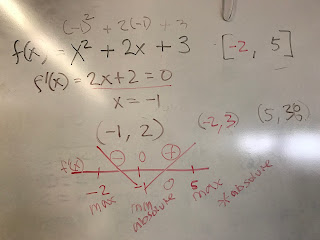 (-1)² + 2(-1) + 3
f(x) = x² + 2x + 3 [-2, 5]
f'(x) = 2x+2 = 0
x = -1
(-1, 2) (-2,3) (5,38)
f(x) - 0 +
-2 -1 0 5
max min max * absolute
absolute